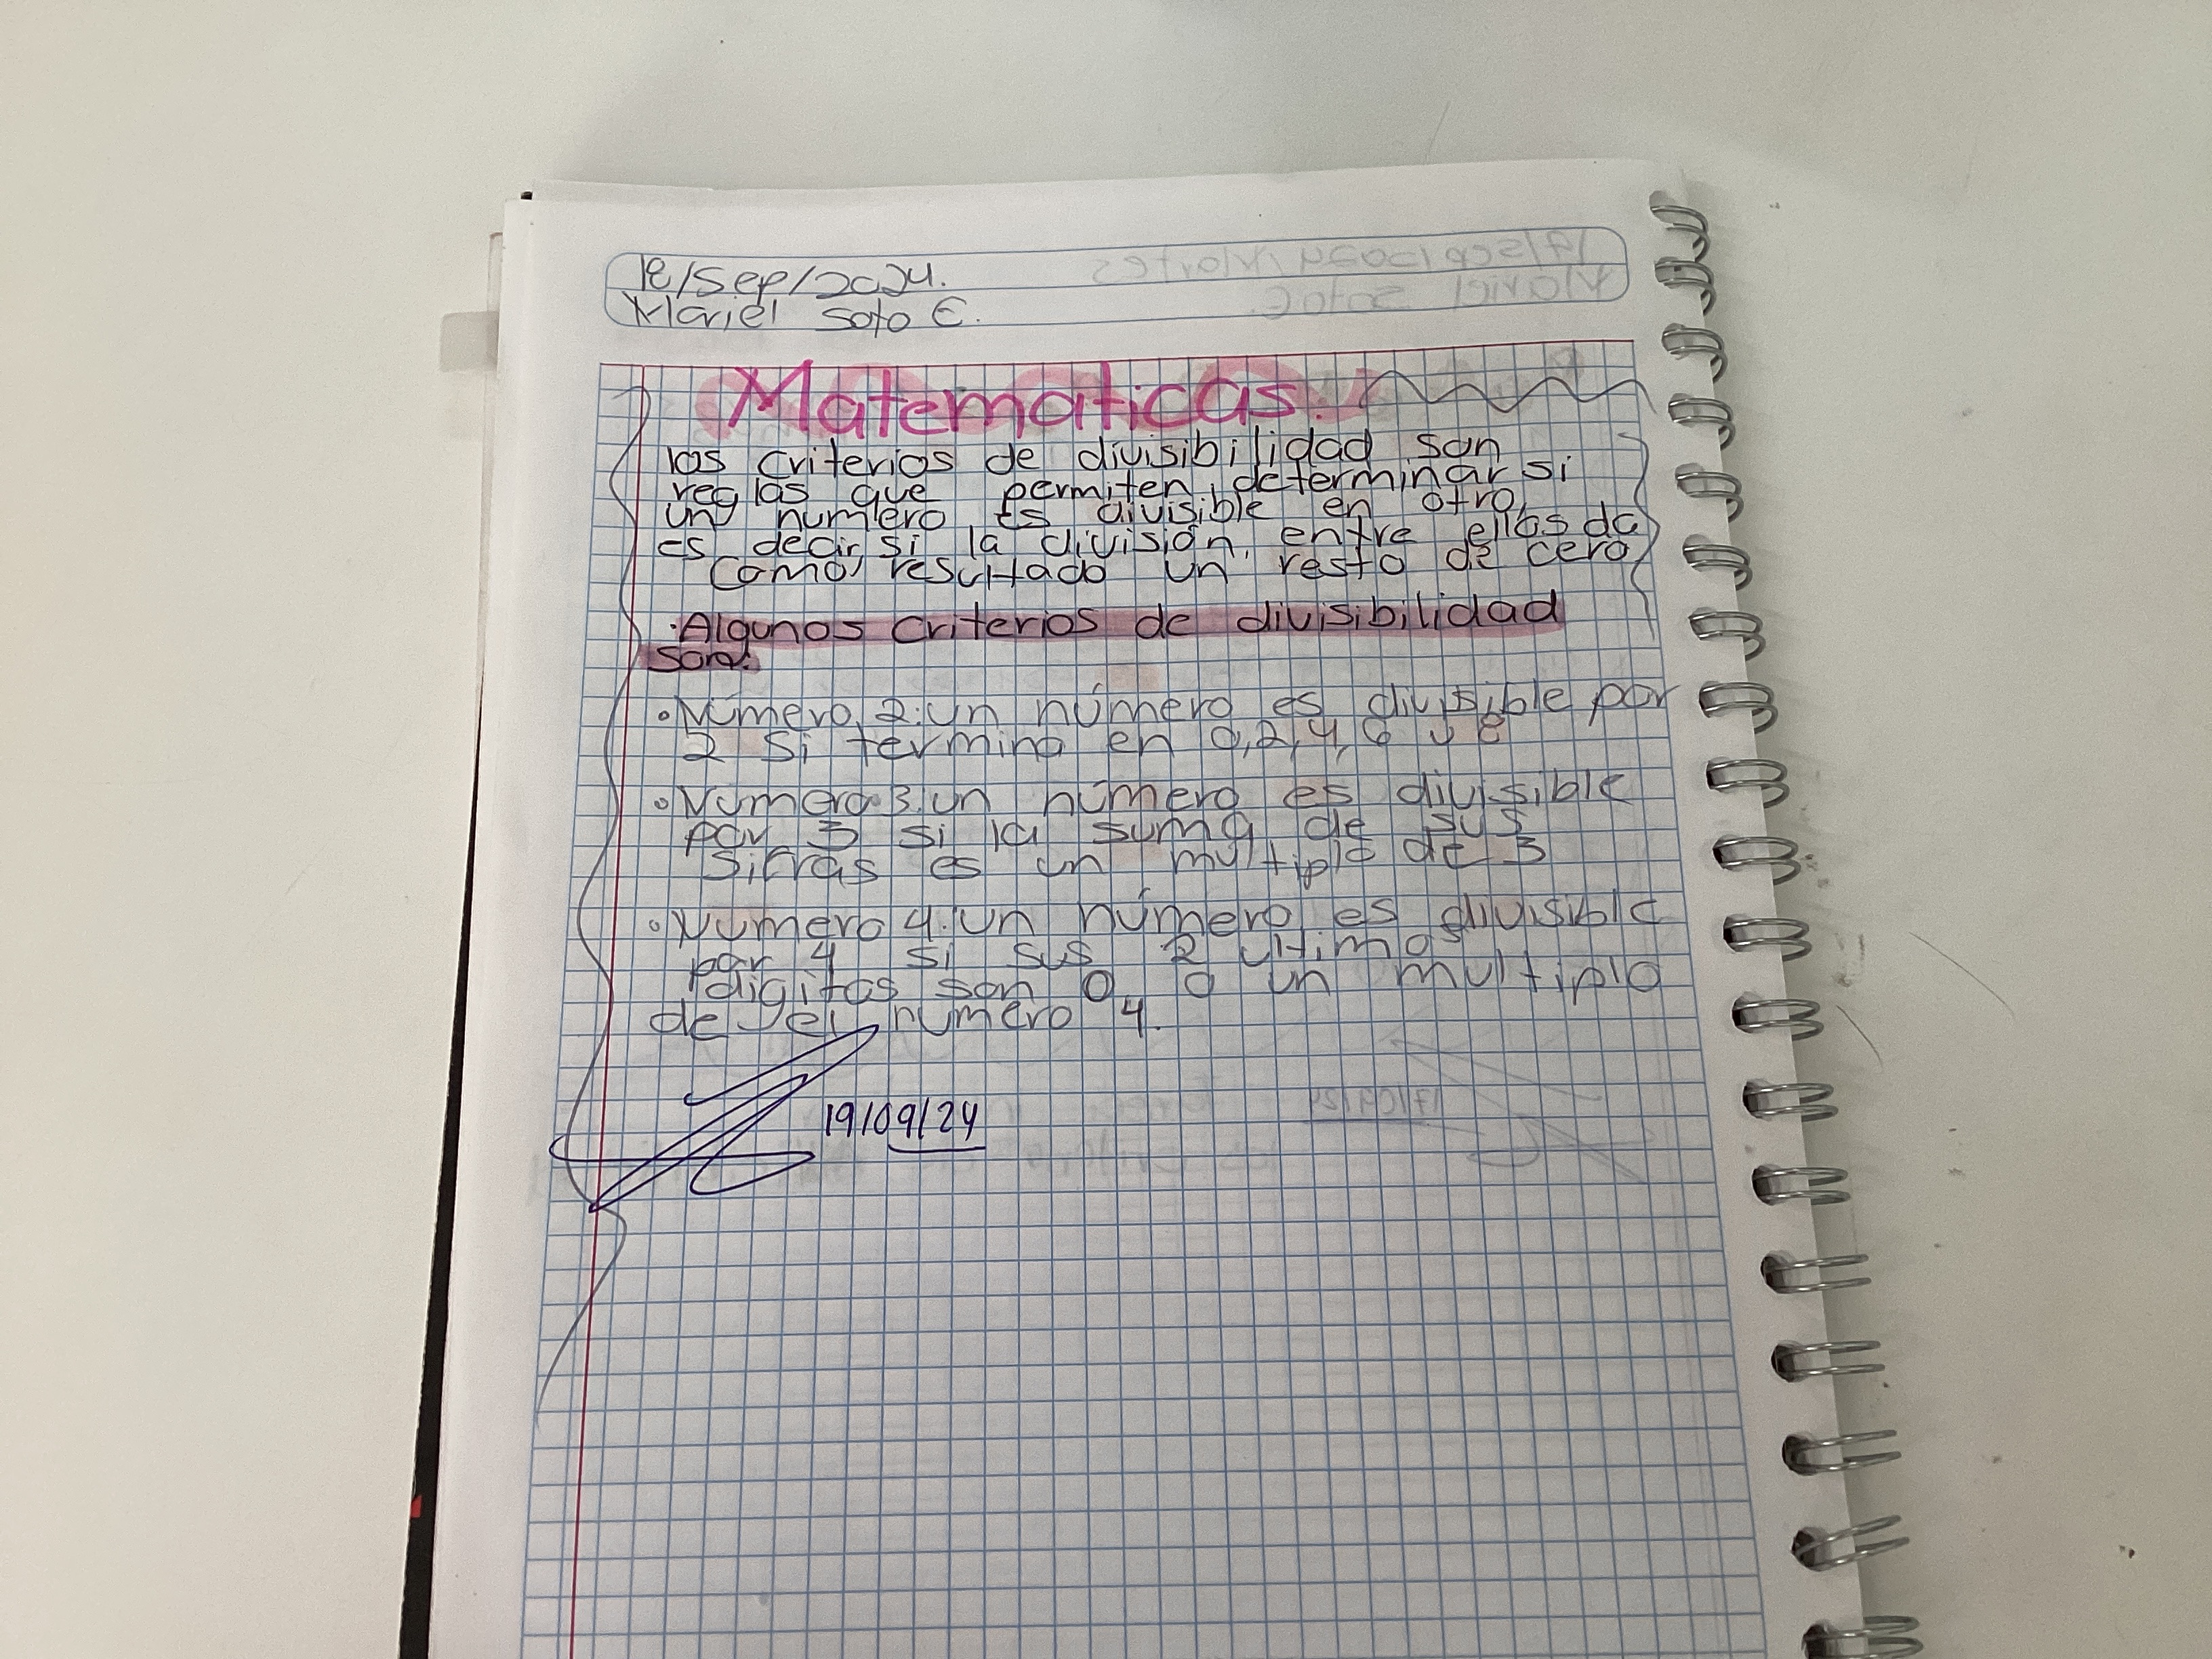 18/Sep/2024.
Mariel Soto E.
Matematicas.
los criterios de divisibilidad son
reglas que permiten determinar si
un numero es divisible en otro,
es decir si la división entre ellos da
como resultado un resto de cero
·Algunos criterios de divisibilidad
son:
◦Número 2: un número es divisible por
2 si termina en 0,2,4,6 u 8
◦Numero 3: un número es divisible
por 3 si la suma de sus
sifras es un multiplo de 3
◦Numero 4: un número es divisible
por 4 si sus 2 ultimos
digitos son 0 o un multiplo
de el numero 4.
19/09/24